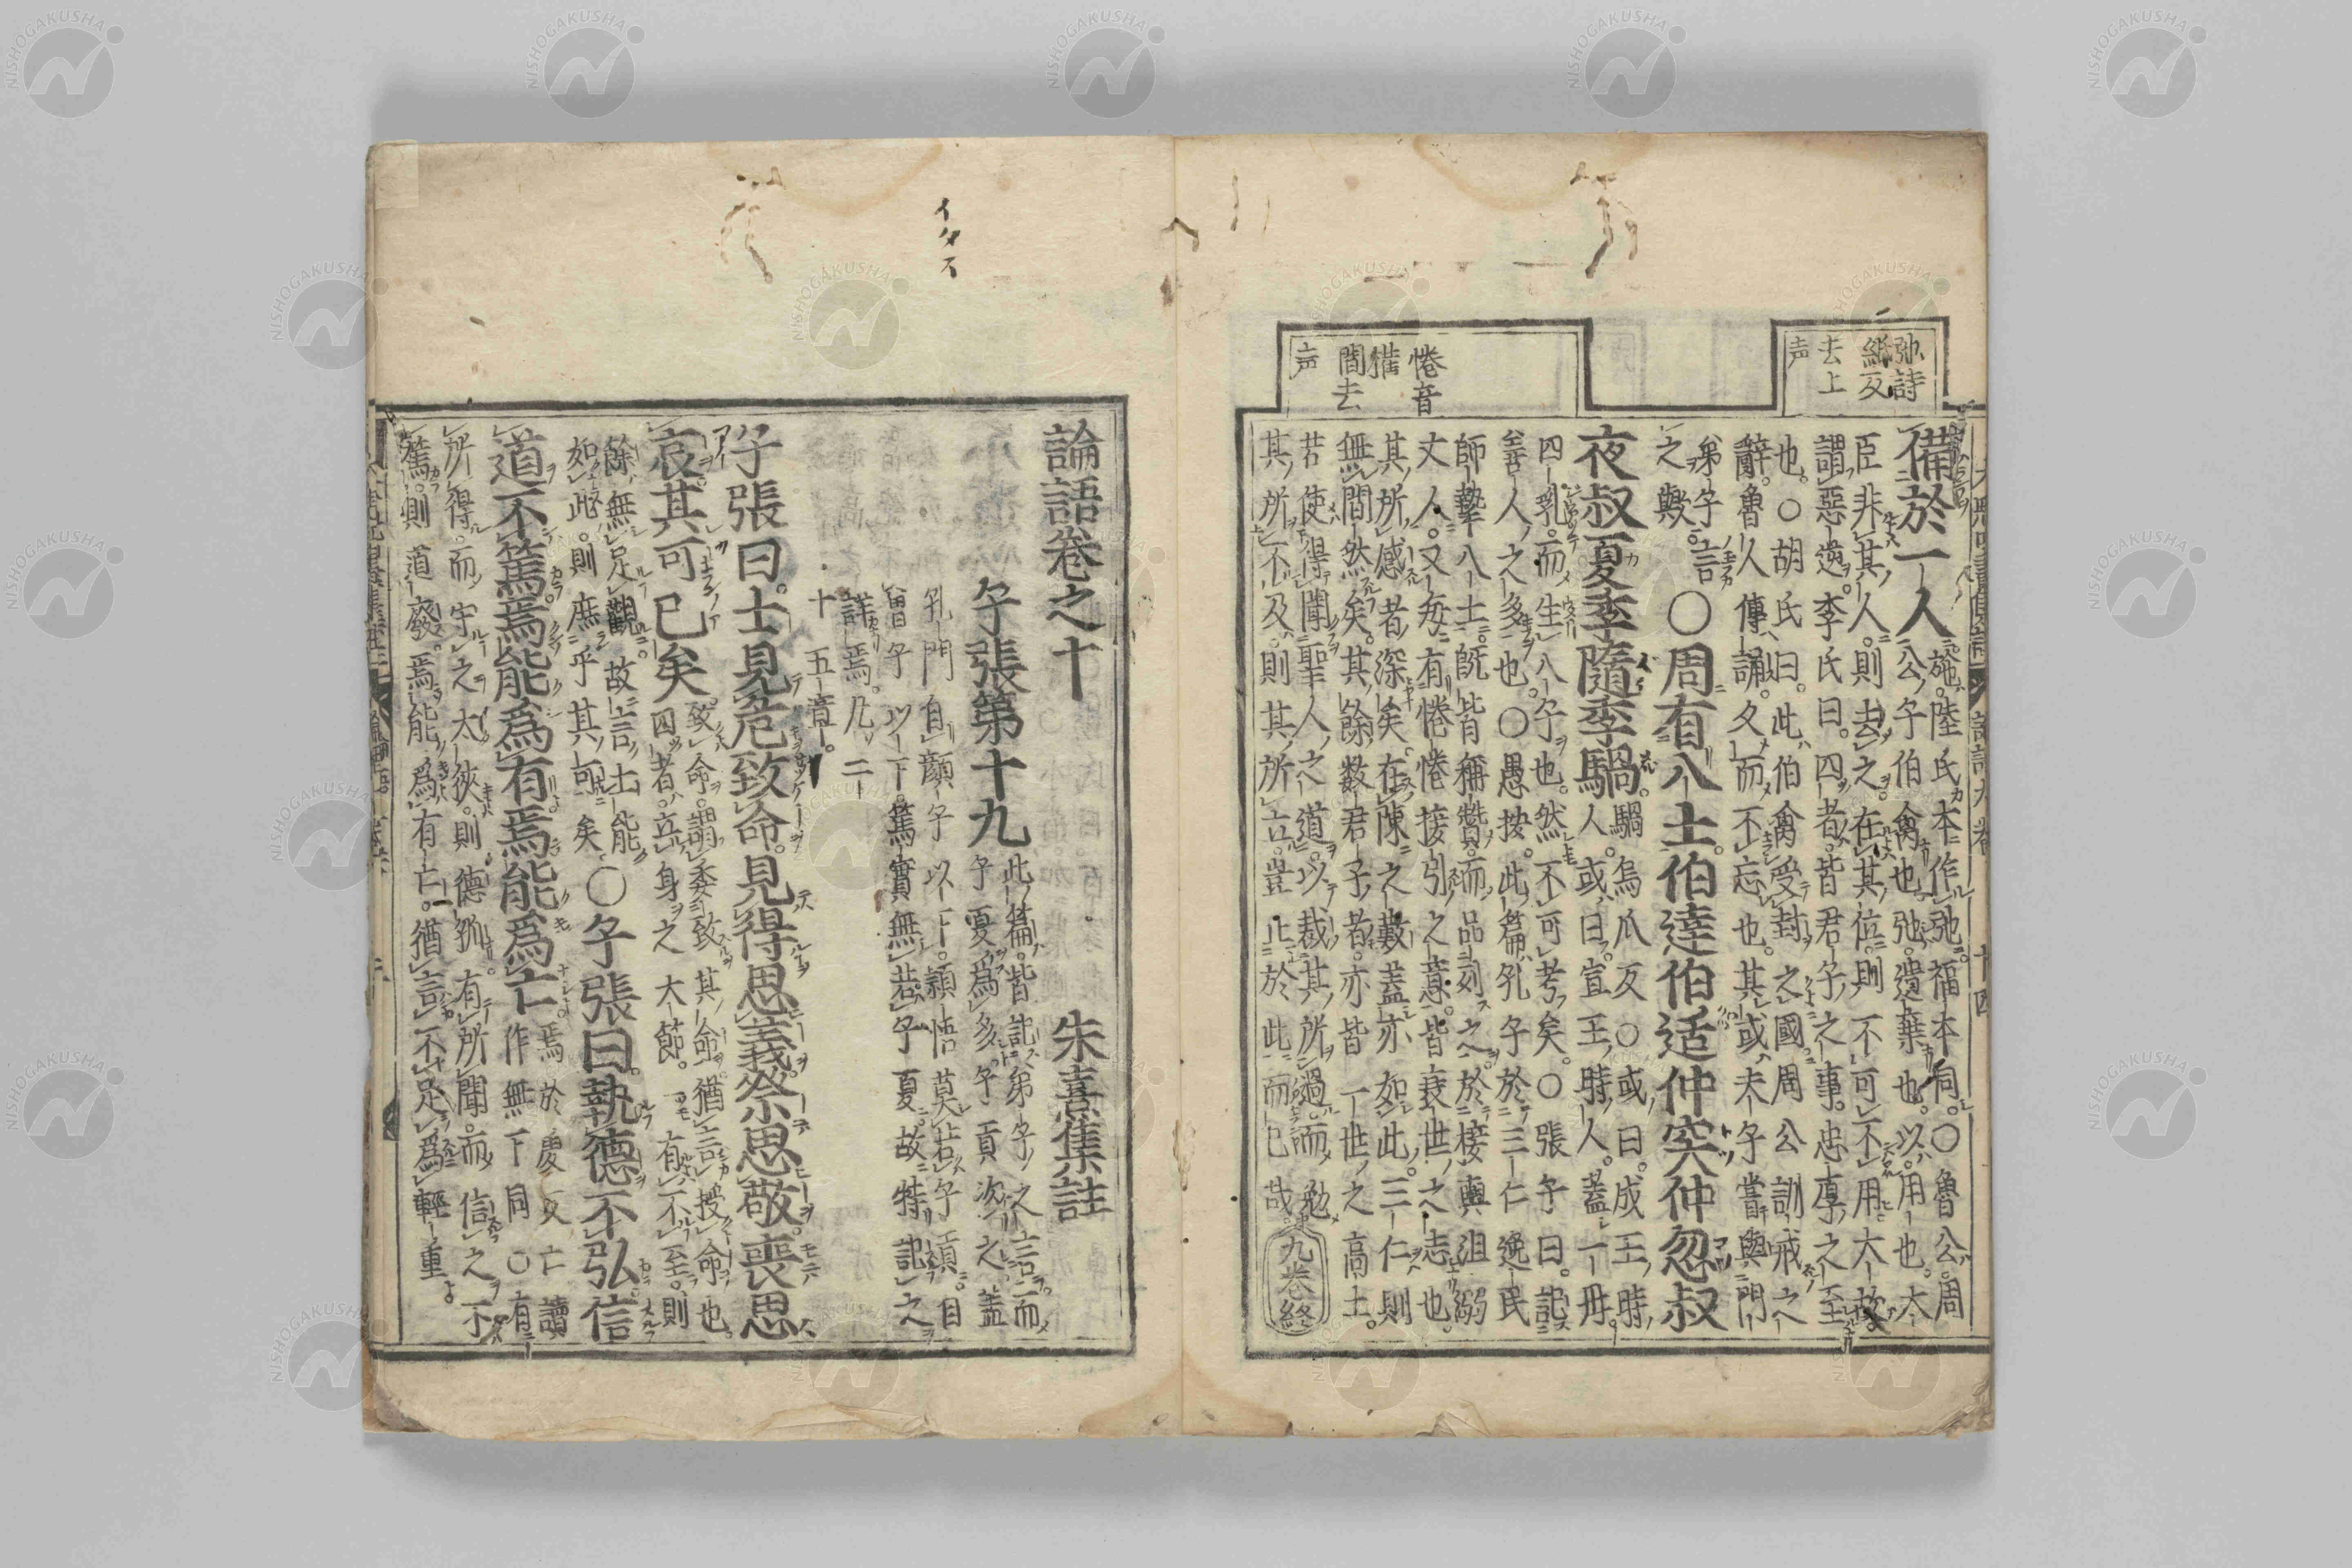 弛詩
紙反
去上
声
惓音
㩲
間去
声
備於一人施陸氏本作弛福本同○魯公周
公子伯禽也弛遺棄也以用也大
臣非其人則去之在其位則不可不用大故
謂惡逆李氏曰四者皆君子之事忠厚之至
也○胡氏曰此伯禽受封之國周公訓戒之
辭魯人傳誦久而不忘也其或夫子嘗與門
弟子言
之歟○周有八士伯達伯适仲突仲忽叔
夜叔夏季隨季騧騧烏瓜反○或曰成王時
人或曰宣王時人蓋一母
四乳而生八子也然不可考矣○張子曰記
善人之多也○愚按此篇孔子於三仁逸民
師摯八士既皆稱贊而品列之於接輿沮溺
丈人又每有惓惓接引之意皆衰世之志也
其所感者深矣在陳之歎蓋亦如此三仁則
無間然矣其餘數君子者亦皆一世之高士
若使得聞聖人之道以裁其所過而勉
其所不及則其所立豈止於此而已哉
九卷終
イタス
論語卷之十
朱熹集註
子張第十九此篇皆記弟子之言而
子夏為多子貢次之蓋
孔門自顏子以下穎悟莫若子貢自
曾子以下篤實無若子夏故特記之
詳焉凡二
十五章
子張曰士見危致命見得思義祭思敬喪思
哀其可已矣致命謂委致其命猶言授命也
四者立身之大節一有不至則
餘無足觀故言士能
如此則庶乎其可矣○子張曰執德不弘信
道不篤焉能為有焉能為亡焉於虔反亡讀
作無下同○有
所得而守之太狹則德孤有所聞而信之不
篤則道廢焉能為有亡猶言不足為輕重